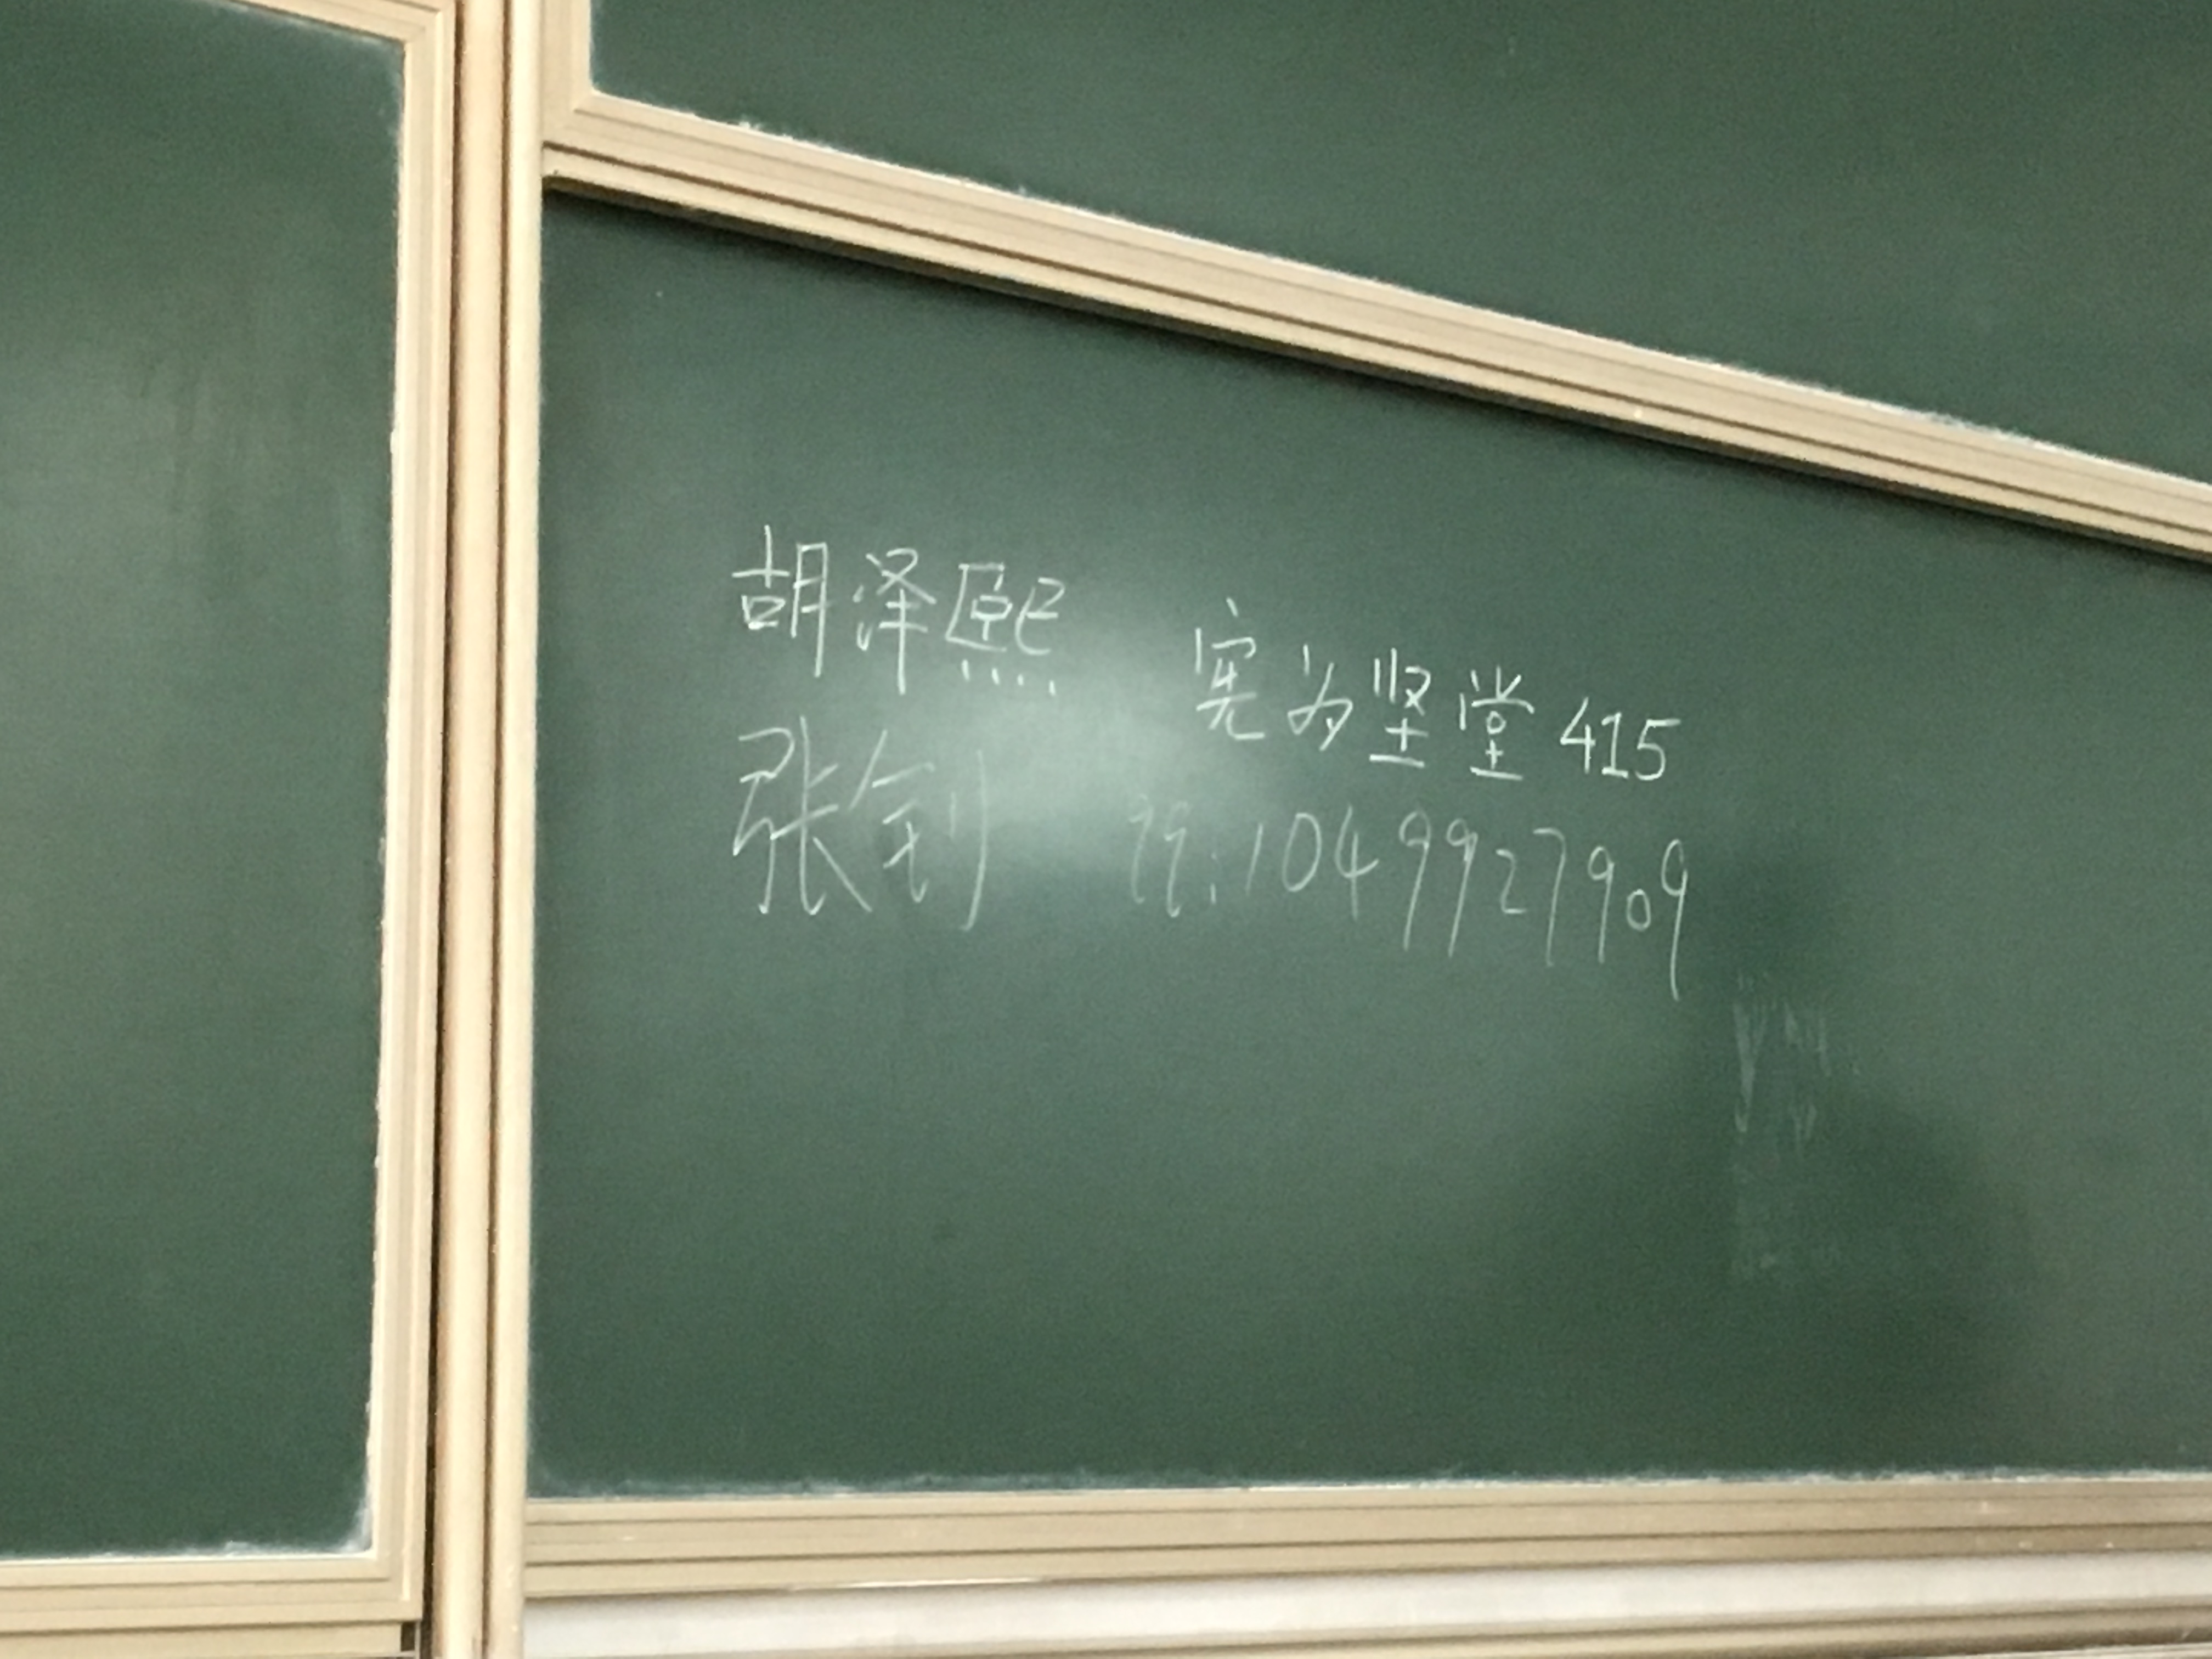 胡泽熙 宪为坚堂 415
张钊 qq:1049927909